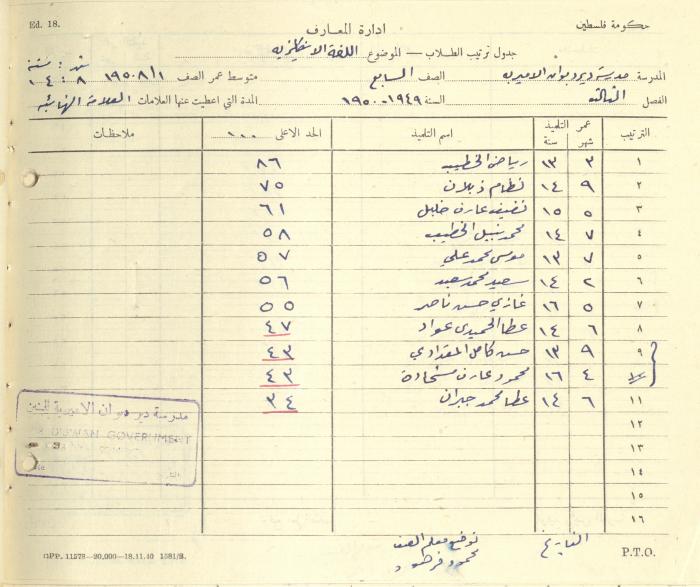 Ed. 18.
حكومة فلسطين
ادارة المعارف
جدول ترتيب الطلاب — الموضوع اللغة الانكليزية
شهر : سنة
المدرسة مدرسة ديردبوان الاميرية الصف السابع متوسط عمر الصف ١٩٥٠/٨/١ ٨ : ١٤
الفصل الثالث السنة ١٩٤٩-١٩٥٠ المدة التي اعطيت عنها العلامات العلامة النهائية
الترتيب عمر التلميذ شهر سنة اسم التلميذ الحد الاعلى ١٠٠ ملاحظات
١ ٣ ١٣ رياض الخطيب ٨٦
٢ ٩ ١٤ نظام ذبلان ٧٥
٣ ٥ ١٥ نضيف عارف خليل ٦١
٤ ٧ ١٤ محمد نبيل الخطيب ٥٨
٥ ٧ ١٣ موسى محمد علي ٥٧
٦ ٢ ١٤ سعيد محمد سعيد ٥٦
٧ ٥ ١٦ غازي حسن ناصر ٥٥
٨ ٦ ١٤ عطا الحميدي عواد ٤٧
٩ ٩ ١٣ حسن كامل المقدادي ٤٣
٤ ١٦ محمود عارف شحادة ٤٣
١١ ٦ ١٤ عطا محمد جبران ٣٤
١٢
١٣
١٤
١٥
١٦
مدرسة دير دبوان الاميرية للبنين
DIBWAN GOVERNMENT
التاريخ
توقيع معلم الصف
محمود فرهود
GPP. 11578—20,000—18.11.40 1581/S.
P.T.O.